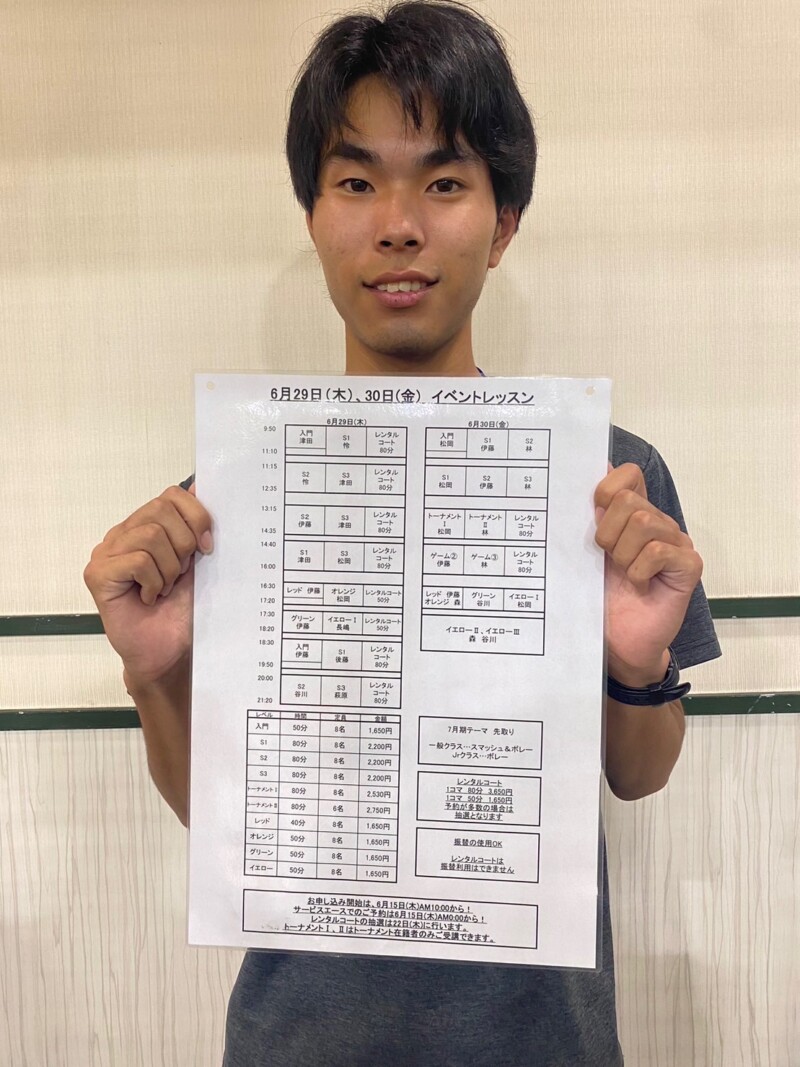 6月29日(木)、30日(金) イベントレッスン
6月29日(木)
6月30日(金)
9:50
11:10
入門 津田
S1 怜
レンタルコート 80分
入門 松岡
S1 伊藤
S2 林
11:15
12:35
S2 怜
S3 津田
レンタルコート 80分
S1 松岡
S2 伊藤
S3 林
13:15
14:35
S2 伊藤
S3 津田
レンタルコート 80分
トーナメントⅠ 松岡
トーナメントⅡ 林
レンタルコート 80分
14:40
16:00
S1 津田
S3 松岡
レンタルコート 80分
ゲーム② 伊藤
ゲーム③ 林
レンタルコート 80分
16:30
17:20
レッド 伊藤
オレンジ 松岡
レンタルコート 50分
レッド 伊藤
オレンジ 森
グリーン 谷川
イエローⅠ 松岡
17:30
18:20
グリーン 伊藤
イエローⅠ 長嶋
レンタルコート 50分
イエローⅡ、イエローⅢ
森 谷川
18:30
19:50
入門 伊藤
S1 後藤
レンタルコート 80分
20:00
21:20
S2 谷川
S3 萩原
レンタルコート 80分
レベル 時間 定員 金額
入門 50分 8名 1,650円
S1 80分 8名 2,200円
S2 80分 8名 2,200円
S3 80分 8名 2,200円
トーナメントⅠ 80分 8名 2,530円
トーナメントⅡ 80分 6名 2,750円
レッド 40分 8名 1,650円
オレンジ 50分 8名 1,650円
グリーン 50分 8名 1,650円
イエロー 50分 8名 1,650円
7月期テーマ 先取り
一般クラス…スマッシュ&ボレー
Jrクラス…ボレー
レンタルコート
1コマ 80分 3,650円
1コマ 50分 1,650円
予約が多数の場合は
抽選となります
振替の使用OK
レンタルコートは
振替利用はできません
お申し込み開始は、6月15日(木)AM10:00から!
サービスエースでのご予約は6月15日(木)AM0:00から!
レンタルコートの抽選は22日(木)に行います。
トーナメントⅠ、Ⅱはトーナメント在籍者のみご受講できます。